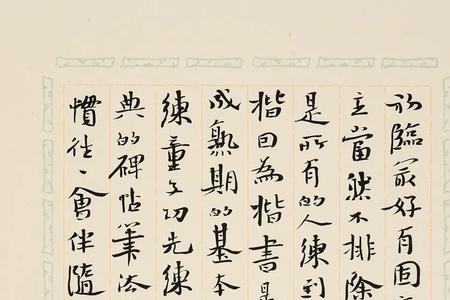 初臨最好有固
當然不排除
是所有的人練到
楷因為楷書是
成熟期的基本
練童子功先練
典的碑帖筆法
慣往、會伴隨